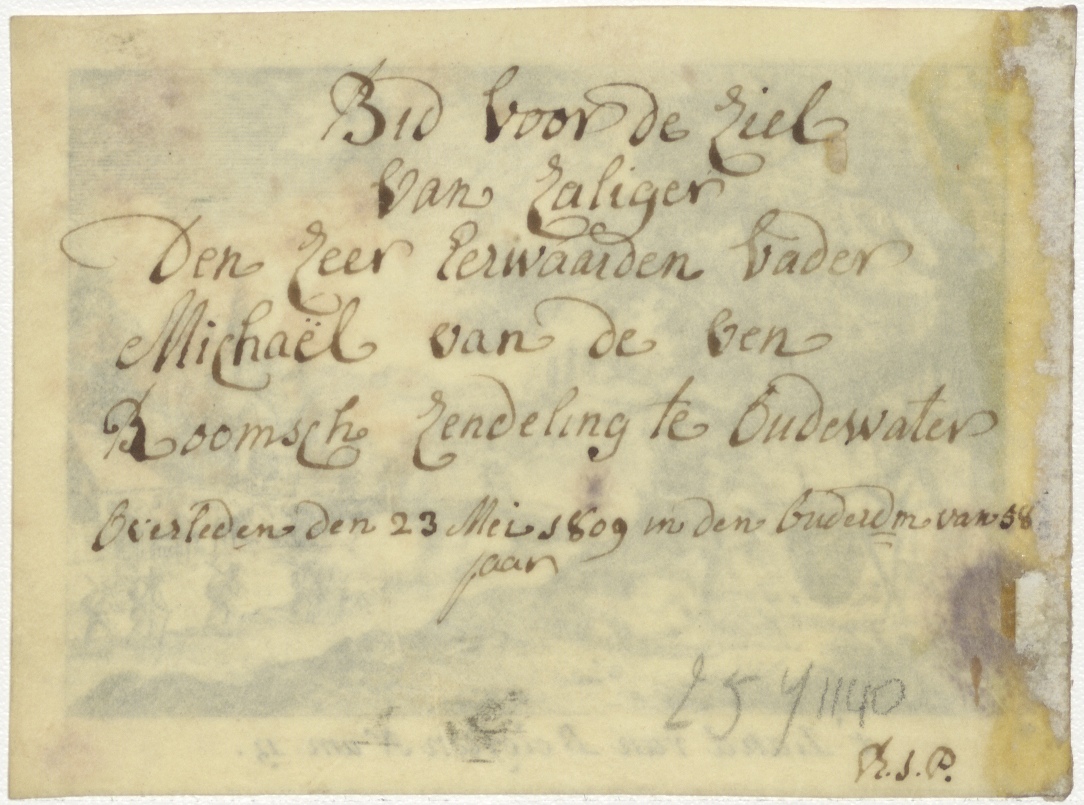 Bid voor de Ziel
van Zaliger
Den Zeer Eerwaarden Vader
Michaël van de ven
Roomsch Zendeling te Oudewater
Overleden den 23 Mei 1809 in den Ouderdm van 58
jaar
R.I.P.